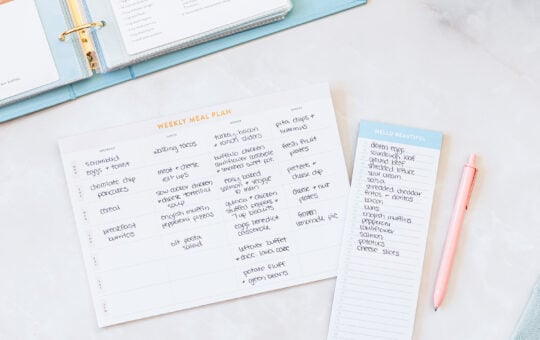 WEEKLY MEAL PLAN
scrambled
eggs + toast
chocolate chip
pancakes
cereal
breakfast
burritos
walking tacos
meat + cheese
roll ups
slow cooker chicken
+ cheese tortellini
soup
english muffin
pepperoni pizzas
blt pasta
salad
turkey-bacon
+ ranch sliders
buffalo chicken
cauliflower casserole
easy baked
salmon + veggie
quinoa + chicken
stuffed peppers +
7 up biscuits
eggs benedict
casserole
leftover buffet
potato fluff
+ green beans
pita chips +
hummus
fresh fruit
plates
pretzels +
cheese dip
cheese + nut
plates
frozen
lemonade pie
HELLO BEAUTIFUL
dozen eggs
sourdough loaf
ground beef
shredded lettuce
sour cream
salsa
shredded cheddar
fritos + doritos
bacon
buns
english muffins
pepperoni
cauliflower
salmon
potatoes
cheese slices